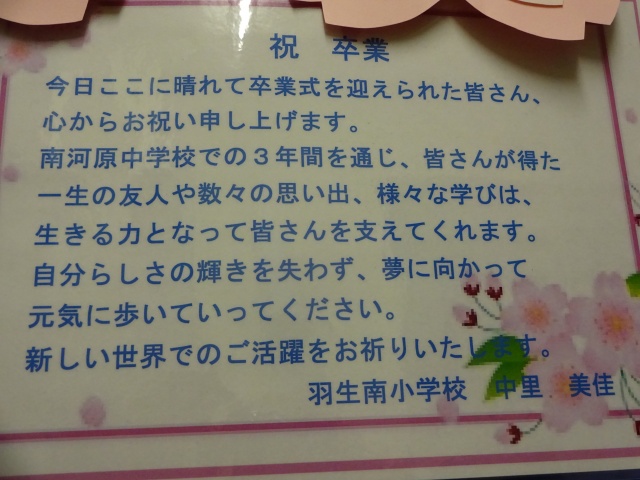 祝　卒業
今日ここに晴れて卒業式を迎えられた皆さん、
心からお祝い申し上げます。
南河原中学校での３年間を通じ、皆さんが得た
一生の友人や数々の思い出、様々な学びは、
生きる力となって皆さんを支えてくれます。
自分らしさの輝きを失わず、夢に向かって
元気に歩いていってください。
新しい世界でのご活躍をお祈りいたします。
羽生南小学校　中里　美佳